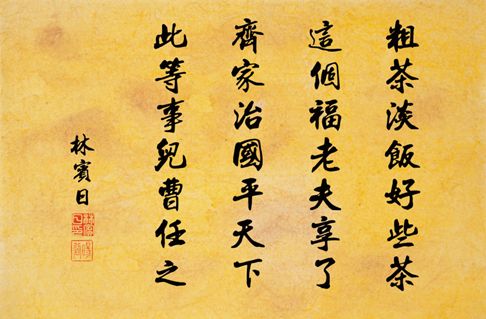 粗茶淡飯好些茶
這個福老夫享了
齊家治國平天下
此等事兒曹任之
林賓日